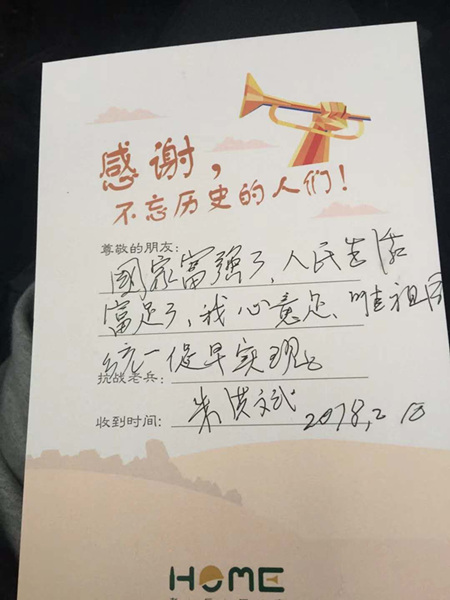 感谢，
不忘历史的人们！
尊敬的朋友：
國家富强了，人民生活
富足了，我心意足，唯祖国
统一促早实现。
抗战老兵：
朱洪斌
收到时间： 2018.2.10
HOME